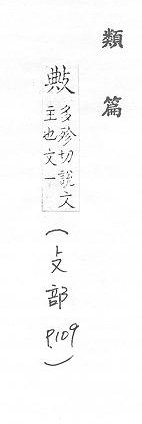 類篇
敟
多殄切說文
主也文一
(攴部 P.109)